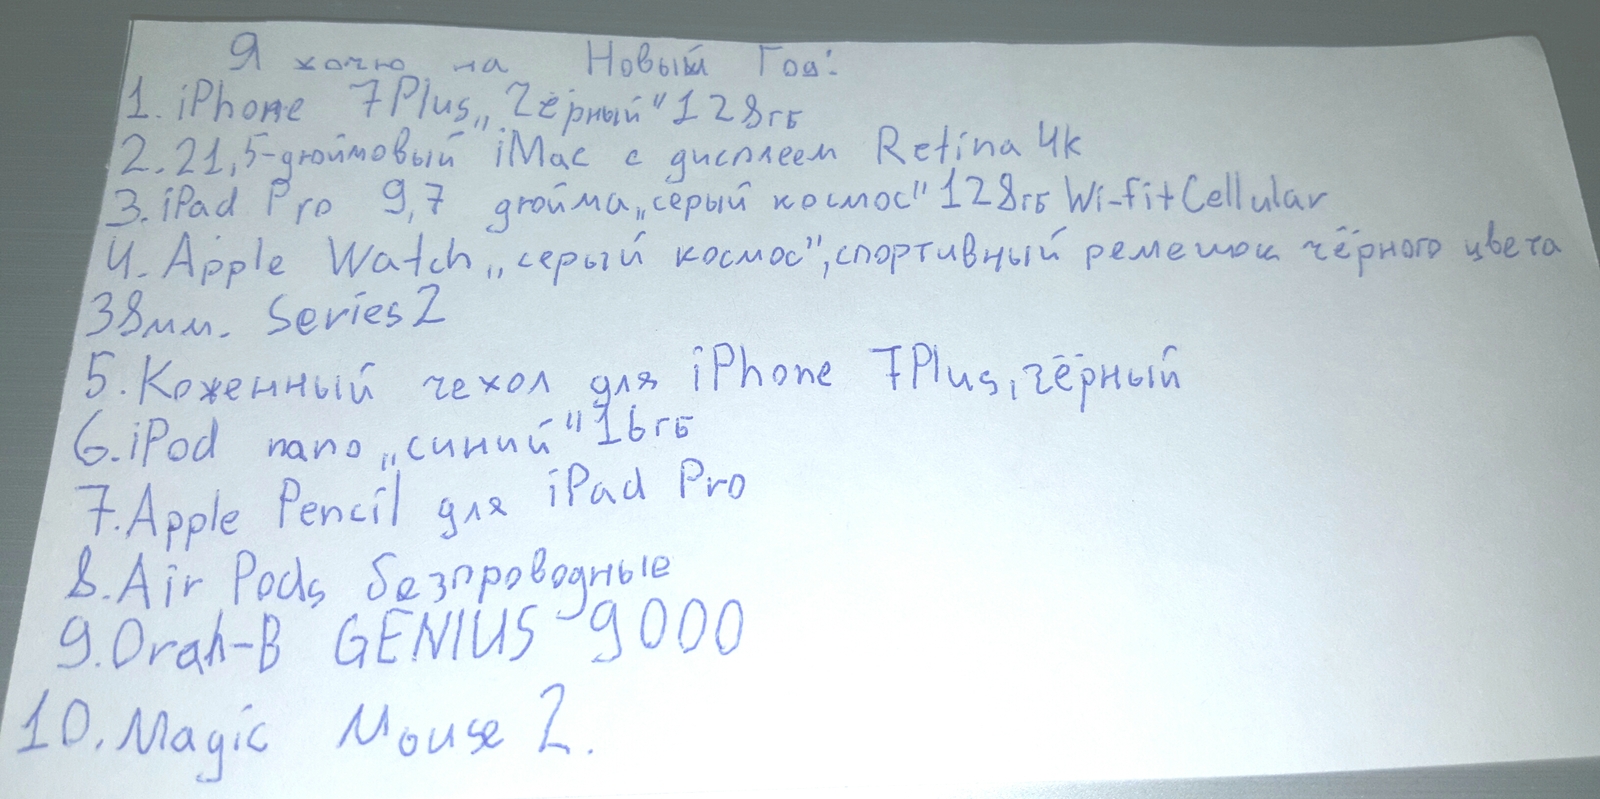 Я хочю на Новый Год:
1. iPhone 7Plus „Чёрный" 128гб
2. 21,5-дюймовый iMac с дисплеем Retina 4k
3. iPad Pro 9,7 дюйма „серый космос" 128гб Wi-fi+Cellular
4. Apple Watch „серый космос", спортивный ремешок чёрного цвета
38мм. Series 2
5. Коженный чехол для iPhone 7Plus, чёрный
6. iPod nano „синий" 16гб
7. Apple Pencil для iPad Pro
8. Air Pods безпроводные
9. Orah-B GENIUS 9000
10. Magic Mouse 2.